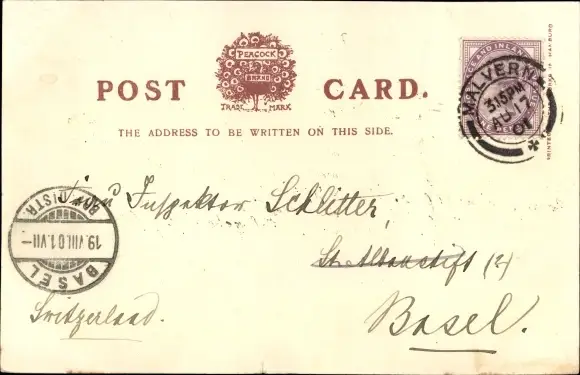 PEACOCK
BRAND
TRADE MARK
POST CARD.
THE ADDRESS TO BE WRITTEN ON THIS SIDE.
MALVERN
3.15PM
AU 17
01
Inspektor Schlitter,
St. Albanstift (2)
Basel.
Switzerland.
BASEL
19.VIII.01.VII